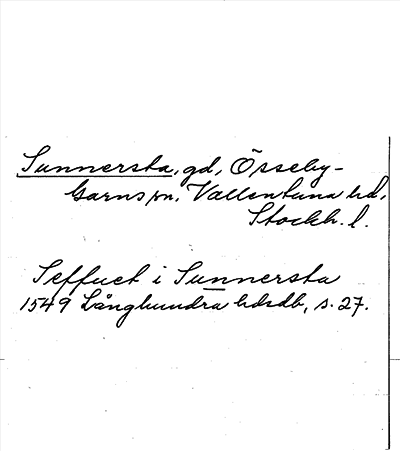 Sunnersta, gd, Össeby-
Garns sn, Vallentuna hd,
Stockh. l.
Seffuet i Sunnersta
1549 Långhundra hdsdb, s. 27.